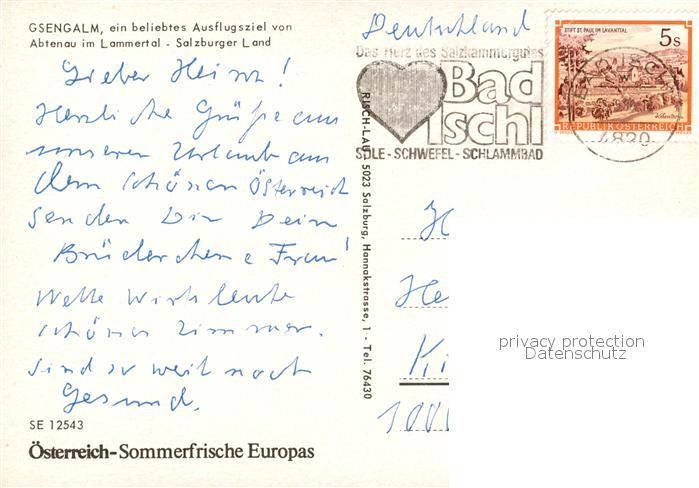 GSENGALM, ein beliebtes Ausflugsziel von
Abtenau im Lammertal - Salzburger Land
Lieber Heinz!
Herzliche Grüße aus
unseren Urlaub aus
dem schönen Österreich
senden Dir Dein
Brüderchen e Frau!
Wette Wirtsleute
schönes Zimmer.
sind so weit noch
Gesund.
SE 12543
Österreich-Sommerfrische Europas
RISCH-LAU, 5023 Salzburg, Hannakstrasse, 1 - Tel. 76430
Deutschland
Das Herz des Salzkammergutes
Bad
Ischl
SOLE - SCHWEFEL - SCHLAMMBAD
STIFT ST. PAUL IM LAVANTTAL
5s
REPUBLIK ÖSTERREICH
4820
H
He
Ki
1000
privacy protection
Datenschutz